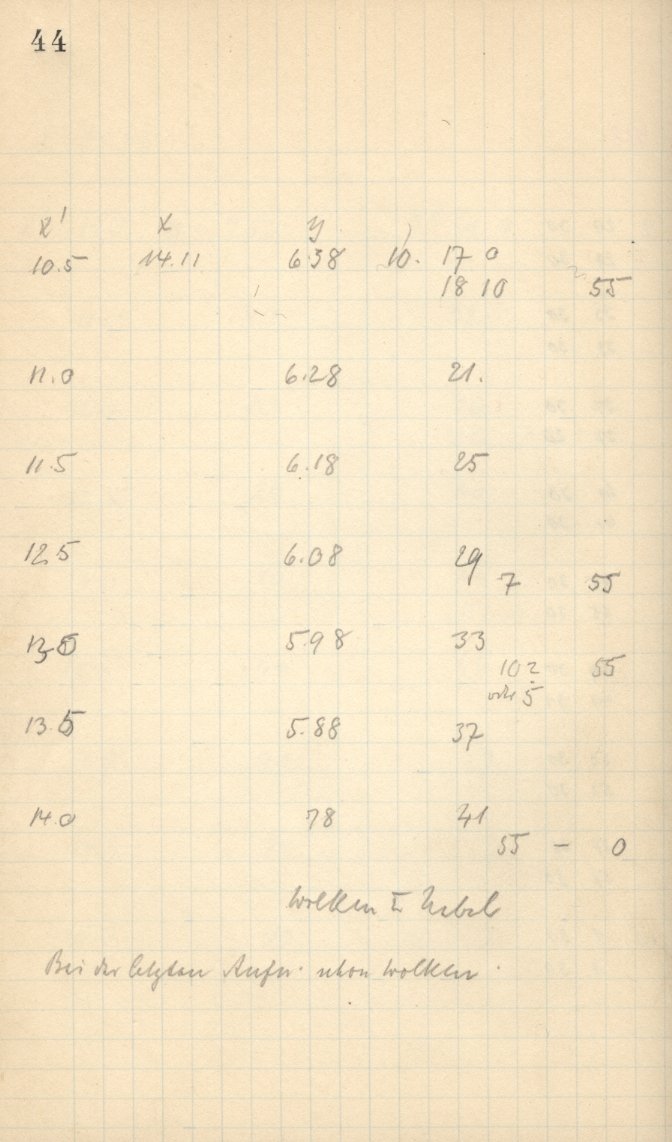 44
x' x y
10.5 14.11 6.38 10. 17 0
18 10 55
11.0 6.28 21.
11.5 6.18 25
12.5 6.08 29
7 55
13.0 5.98 33
10? 55
oder 5
13.5 5.88 37
14.0 78 41
55 - 0
Wolken Nebel
Bei der letzten Aufn. schon Wolken.